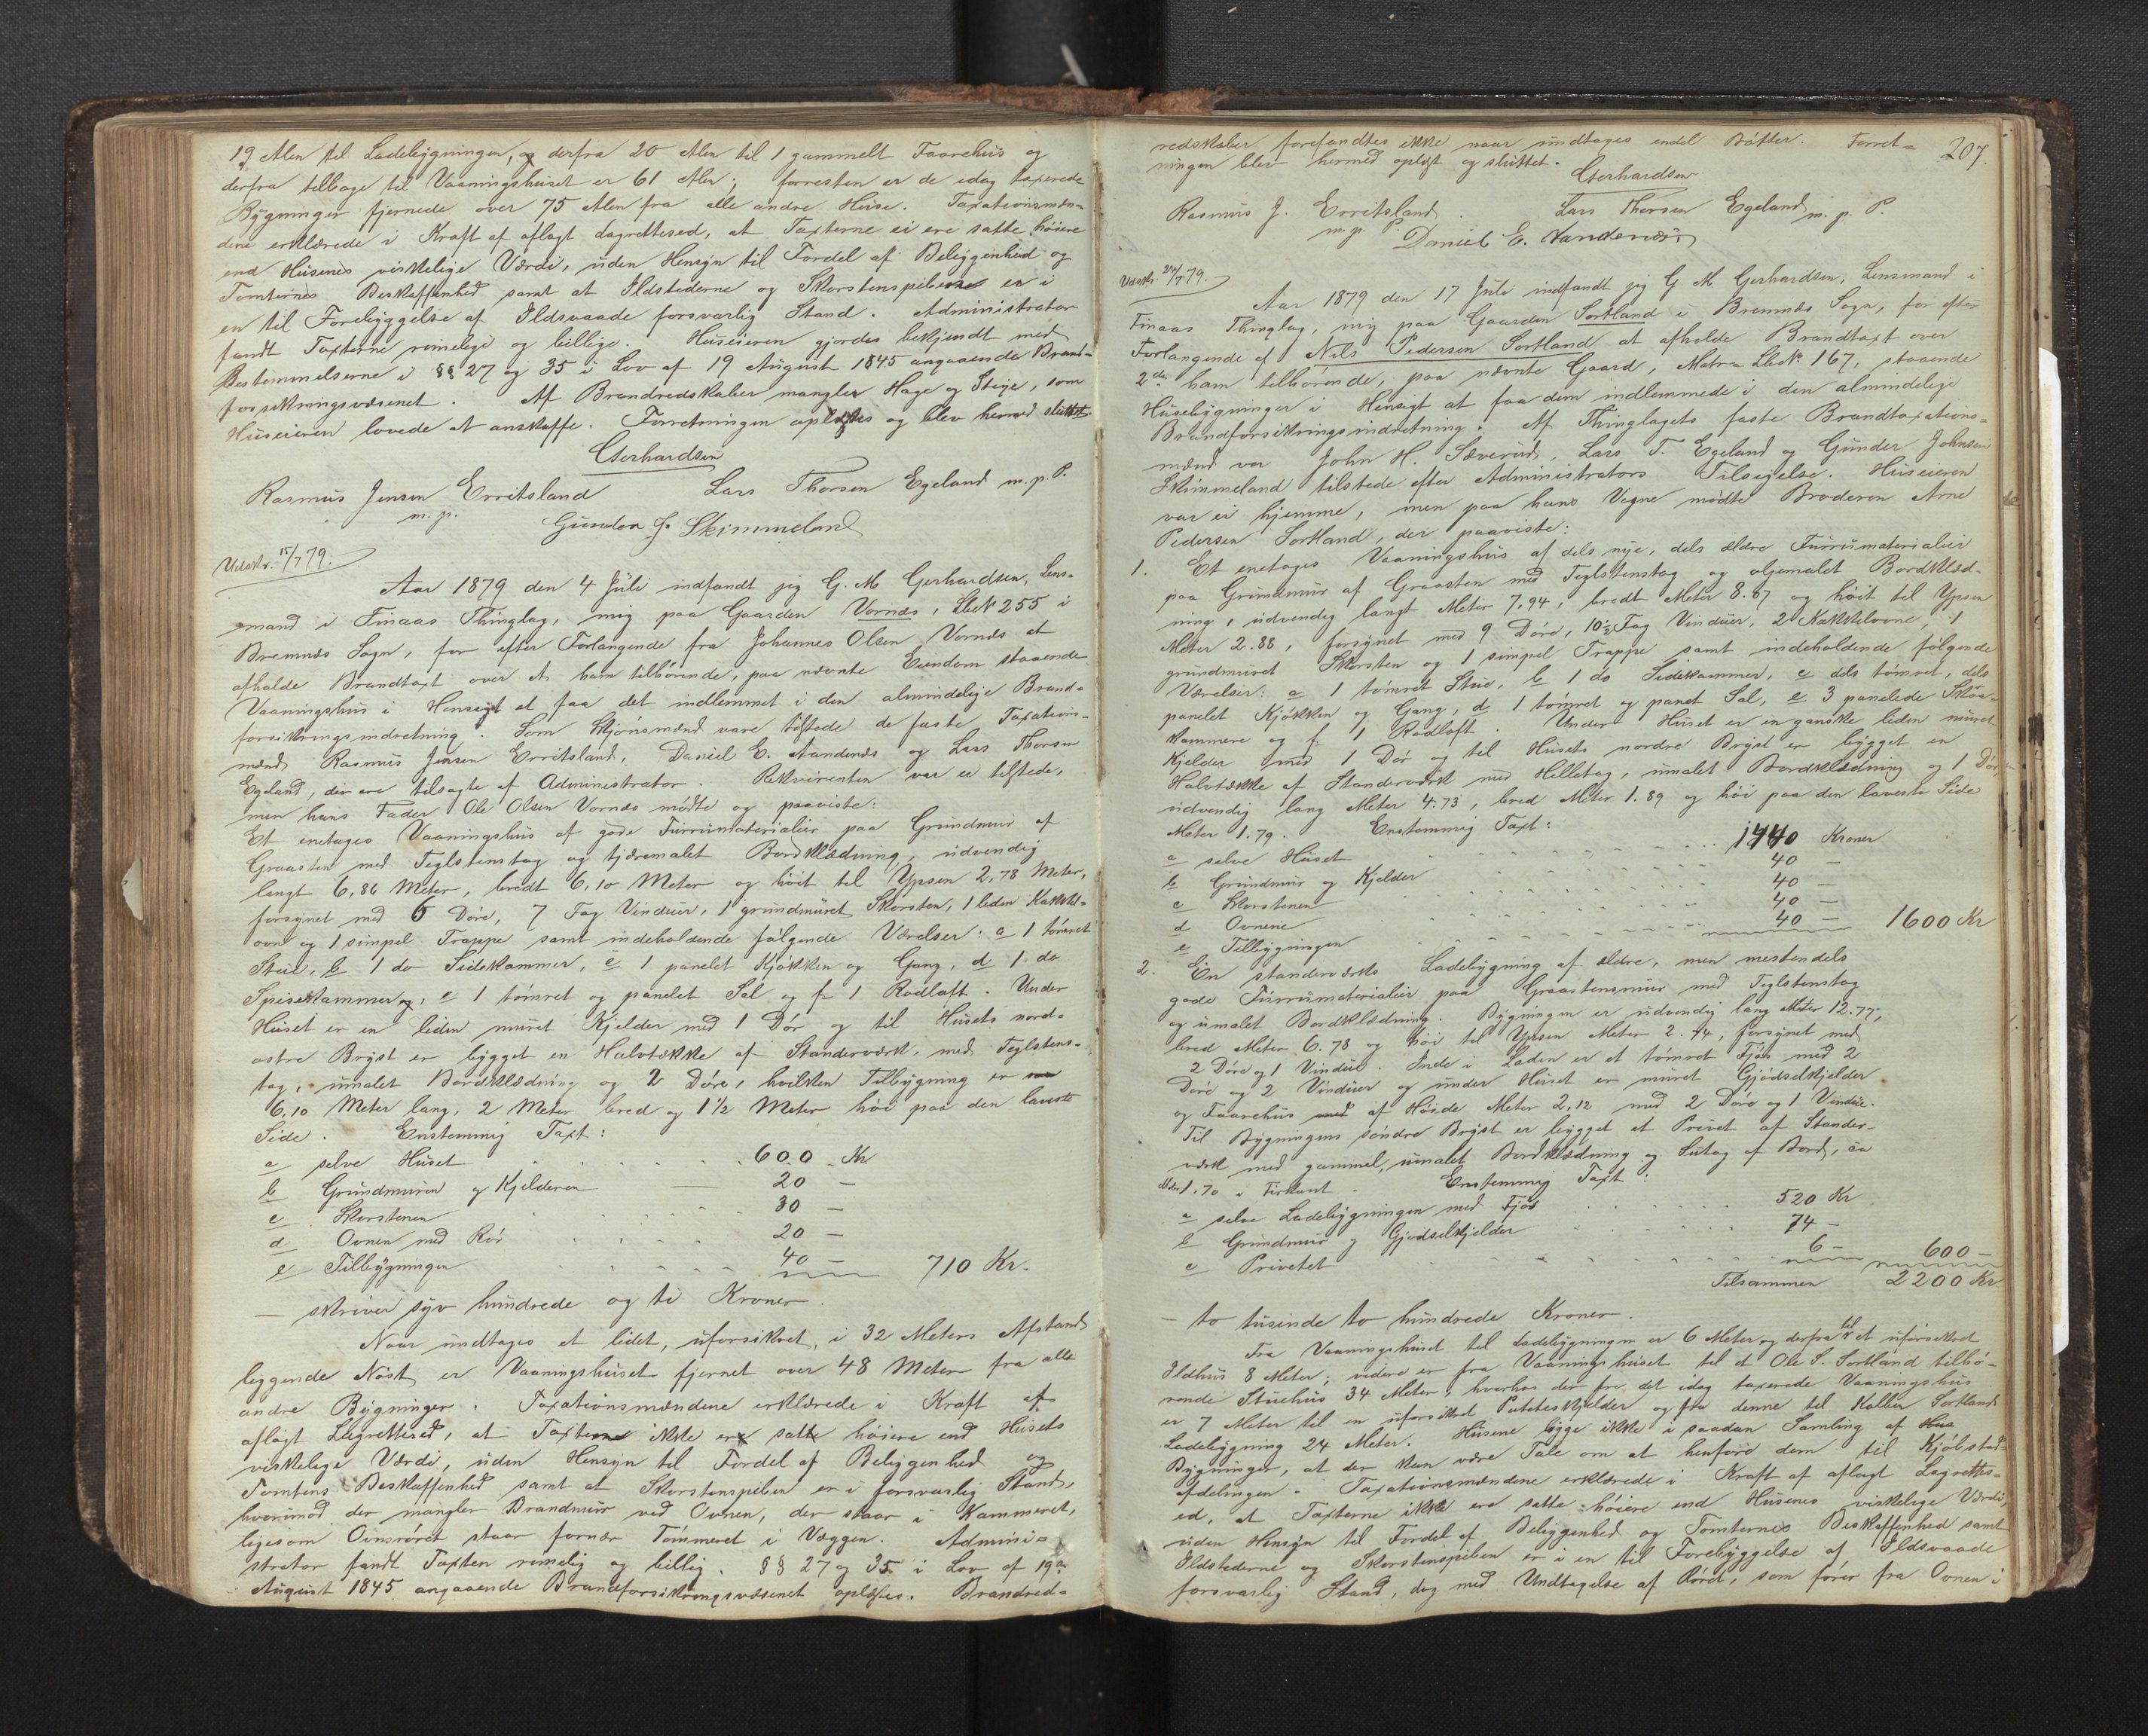 19 Alen til Ladebygningen, og derfra 20 Alen til 1 gammelt Faarehus og
derfra tilbage til Vaaningshuset er 61 Alen; forresten er de idag taxerede
Bygninger fjernede over 75 Alen fra alle andre Huse. Taxationsmæn-
dene erklærede i Kraft af aflagt Lagrettesed, at Taxterne ei ere satte høiere
end Husenes virkelige Værdi, uden Hensyn til Fordel af Beliggenhed og
Tomternes Beskaffenhed samt at Ildstederne og Skorstenspiberne er i
en til Forebyggelse af Ildsvaade forsvarlig Stand. Administrator
fandt Taxterne rimelige og billige. Huseieren gjordes bekjendt med
Bestemmelserne i §§ 27 og 35 i Lov af 19 August 1845 angaaende Brand-
forsikringsvæsenet. Af Brandredskaber mangler Hage og Stige, som
Huseieren lovede at anskaffe. Forretningen oplæstes og blev hermed sluttet.
Gerhardsen
Rasmus Jensen Erritsland Lars Thorsen Egeland m.p.P.
m.p. Gunder J. Skimmeland
Udskr. 15/7 79.
Aar 1879 den 4 Juli indfandt jeg G. M. Gerhardsen, Lens-
mand i Finaas Thinglag, mig paa Gaarden Vornes, LbN 255 i
Bremnes Sogn, for efter Forlangende fra Johannes Olsen Vornes at
afholde Brandtaxt over et ham tilhørende, paa nævnte Eiendom staaende
Vaaningshus i Hensigt at faa det indlemmet i den almindelige Brand-
forsikringsindretning. Som Skjønsmænd vare tilstede de faste Taxations-
mænd Rasmus Jensen Erritsland, Daniel E. Aandenes og Lars Thorsen
Egeland, der ere tilsagte af Administrator. Rekvirenten var ei tilstede,
men hans Fader Ole Olsen Vornes mødte og paaviste:
Et enetages Vaaningshus af gode Furumaterialier paa Grundmur af
Graasten med Teglstenstag og tjæremalet Bordklædning, udvendig
langt 6,86 Meter, bredt 6,10 Meter og høit til Ypsen 2,78 Meter,
forsynet med 6 Døre, 7 Fag Vinduer, 1 grundmuret Skorsten, 1 liden Kakkel-
ovn og 1 simpel Trappe samt indeholdende følgende Værelser: a 1 tømret
Stue, b 1 do Sidekammer, c 1 panelet Kjøkken og Gang, d 1 do
Spisekammer og, e 1 tømret og panelet Sal og f 1 Rodloft. Under
Huset er en liden muret Kjelder med 1 Dør og til Husets nord-
østre Bryst er bygget en Halvtække af Standerværk, med Teglstens-
tag, umalet Bordklædning og 2 Døre, hvilken Tilbygning er
6,10 Meter lang, 2 Meter bred og 1 1/2 Meter høi paa den laveste
Side. Enstemmig Taxt:
a selve Huset 600 Kr
b Grundmuren og Kjelderen 20 —
c Skorstenen 30 —
d Ovnen med Rør 20 —
e Tilbygningen 40 — 710 Kr.
— skriver syv hundrede og ti Kroner.
Naar undtages et lidet, uforsikret, i 32 Meters Afstand
liggende Nøst, er Vaaningshuset fjernet over 48 Meter fra alle
andre Bygninger. Taxationsmændene erklærede i Kraft af
aflagt Lagrettesed, at Taxterne ikke ere satte høiere end Husets
virkelige Værdi, uden Hensyn til Fordel af Beliggenhed og
Tomtens Beskaffenhed samt at Skorstenspiben er i forsvarlig Stand,
hvorimod der mangler Brandmur ved Ovnen, der staar i Kammeret,
ligesom Ovnsrøret staar fornær Tømmeret i Væggen. Admini-
strator fandt Taxten rimelig og billig. §§ 27 og 35 i Lov af 19de
August 1845 angaaende Brandforsikringsvæsenet oplæstes. Brandred-
207.
redskaber forefandtes ikke naar undtages endel Bøtter. Forret-
ningen blev hermed oplæst og sluttet.
Gerhardsen
Rasmus J. Erritsland Lars Thorsen Egeland m.p.P.
m.p.P. Daniel E. Aandenes
Udskr. 24/7 79.
Aar 1879 den 17 Juli indfandt jeg G M. Gerhardsen, Lensmand i
Finaas Thinglag, mig paa Gaarden Sortland i Bremnes Sogn, for efter
Forlangende af Nils Pedersen Sortland at afholde Brandtaxt over
2de ham tilhørende, paa nævnte Gaard, Matr. LbN 167, staaende
Husebygninger i Hensigt at faa dem indlemmede i den almindelige
Brandforsikringsindretning. Af Thinglagets faste Brandtaxations-
mænd var John H. Sæverud, Lars T. Egeland og Gunder Johnsen
Skimmeland tilstede efter Administrators Tilsigelse. Huseieren
var ei hjemme, men paa hans Vegne mødte Broderen Arne
Pedersen Sortland, der paaviste:
1. Et enetages Vaaningshus af dels nye, dels ældre Furumaterialier
paa Grundmur af Graasten med Teglstenstag og oljemalet Bordklæd-
ning, udvendig langt Meter 7.94, bredt Meter 8.67 og høit til Ypsen
Meter 2.88, forsynet med 9 Døre, 10 1/2 Fag Vinduer, 2 Kakkelovne, 1
grundmuret Skorsten og 1 simpel Trappe samt indeholdende følgende
Værelser: a 1 tømret Stue, b 1 do Sidekammer, c dels tømret, dels
panelet Kjøkken og Gang, d 1 tømret og panet Sal, e 3 panelede Smaa-
kammere og f 1 Rodloft. Under Huset er en ganske liden muret
Kjelder med 1 Dør og til Husets nordre Bryst er bygget en
Halvtække af Standerværk med Helletag, umalet Bordklædning og 1 Dør,
udvendig lang Meter 4.73, bred Meter 1.89 og høi paa den laveste Side
Meter 1.79. Enstemmig Taxt:
a selve Huset 1440 Kroner
b Grundmur og Kjelder 40 —
c Skorstenen 40 —
d Ovnene 40 —
e Tilbygningen 40 — 1600 Kr
2. En standerværks Ladebygning af ældre, men mestendels
gode Furumaterialier paa Graastensmur med Teglstenstag
og umalet Bordklædning. Bygningen er udvendig lang Meter 12.77,
bred Meter 6.78 og høi til Ypsen Meter 2.94, forsynet med
2 Døre og 1 Vindue. Inde i Laden er et tømret Fjøs med 2
Døre og 2 Vinduer og under Huset er muret Gjødselkjelder
og Faarehus med af Høide Meter 2,12 med 2 Døre og 1 Vindue.
Til Bygningens søndre Bryst er bygget et Privet af Stander-
værk med gammel, umalet Bordklædning og Sutag af Bord, ca
Meter 1.70 i Firkant. Enstemmig Taxt:
a selve Ladebygningen med Fjøs 520 Kr
b Grundmur og Gjødselkjelder 74 —
c Privetet 6 — 600 —
Tilsammen 2200 Kr
— to tusinde to hundrede Kroner.
Fra Vaaningshuset til Ladebygningen er 6 Meter og derfra til et uforsikret
Ildhus 8 Meter; videre er fra Vaaningshuset til et Ole S. Sortland tilhø-
rende Stuehus 34 Meter, hvorhos der fra det idag taxerede Vaaningshus
er 7 Meter til en uforsikret Poteteskjelder og fra denne til Kolbein Sortlands
Ladebygning 24 Meter. Husene ligge ikke i saadan Samling af Hus
Bygninger, at der kan være Tale om at henføre dem til Kjøbstad-
afdelingen. Taxationsmændene erklærede i Kraft af aflagt Lagrettes-
ed, at Taxterne ikke ere satte høiere end Husenes virkelige Værdi,
uden Hensyn til Fordel af Beliggenhed og Tomternes Beskaffenhed samt
Ildstederne og Skorstenspiben er i en til Forebyggelse af Ildsvaade
forsvarlig Stand, dog med Undtagelse af Røret, som fører fra Ovnen i